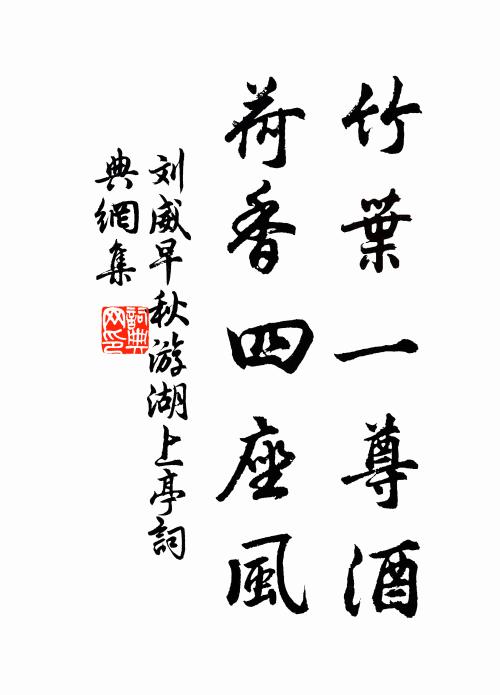 竹葉一尊酒
荷香四座風
刘威早秋游湖上亭詞
典網集
詞典网印